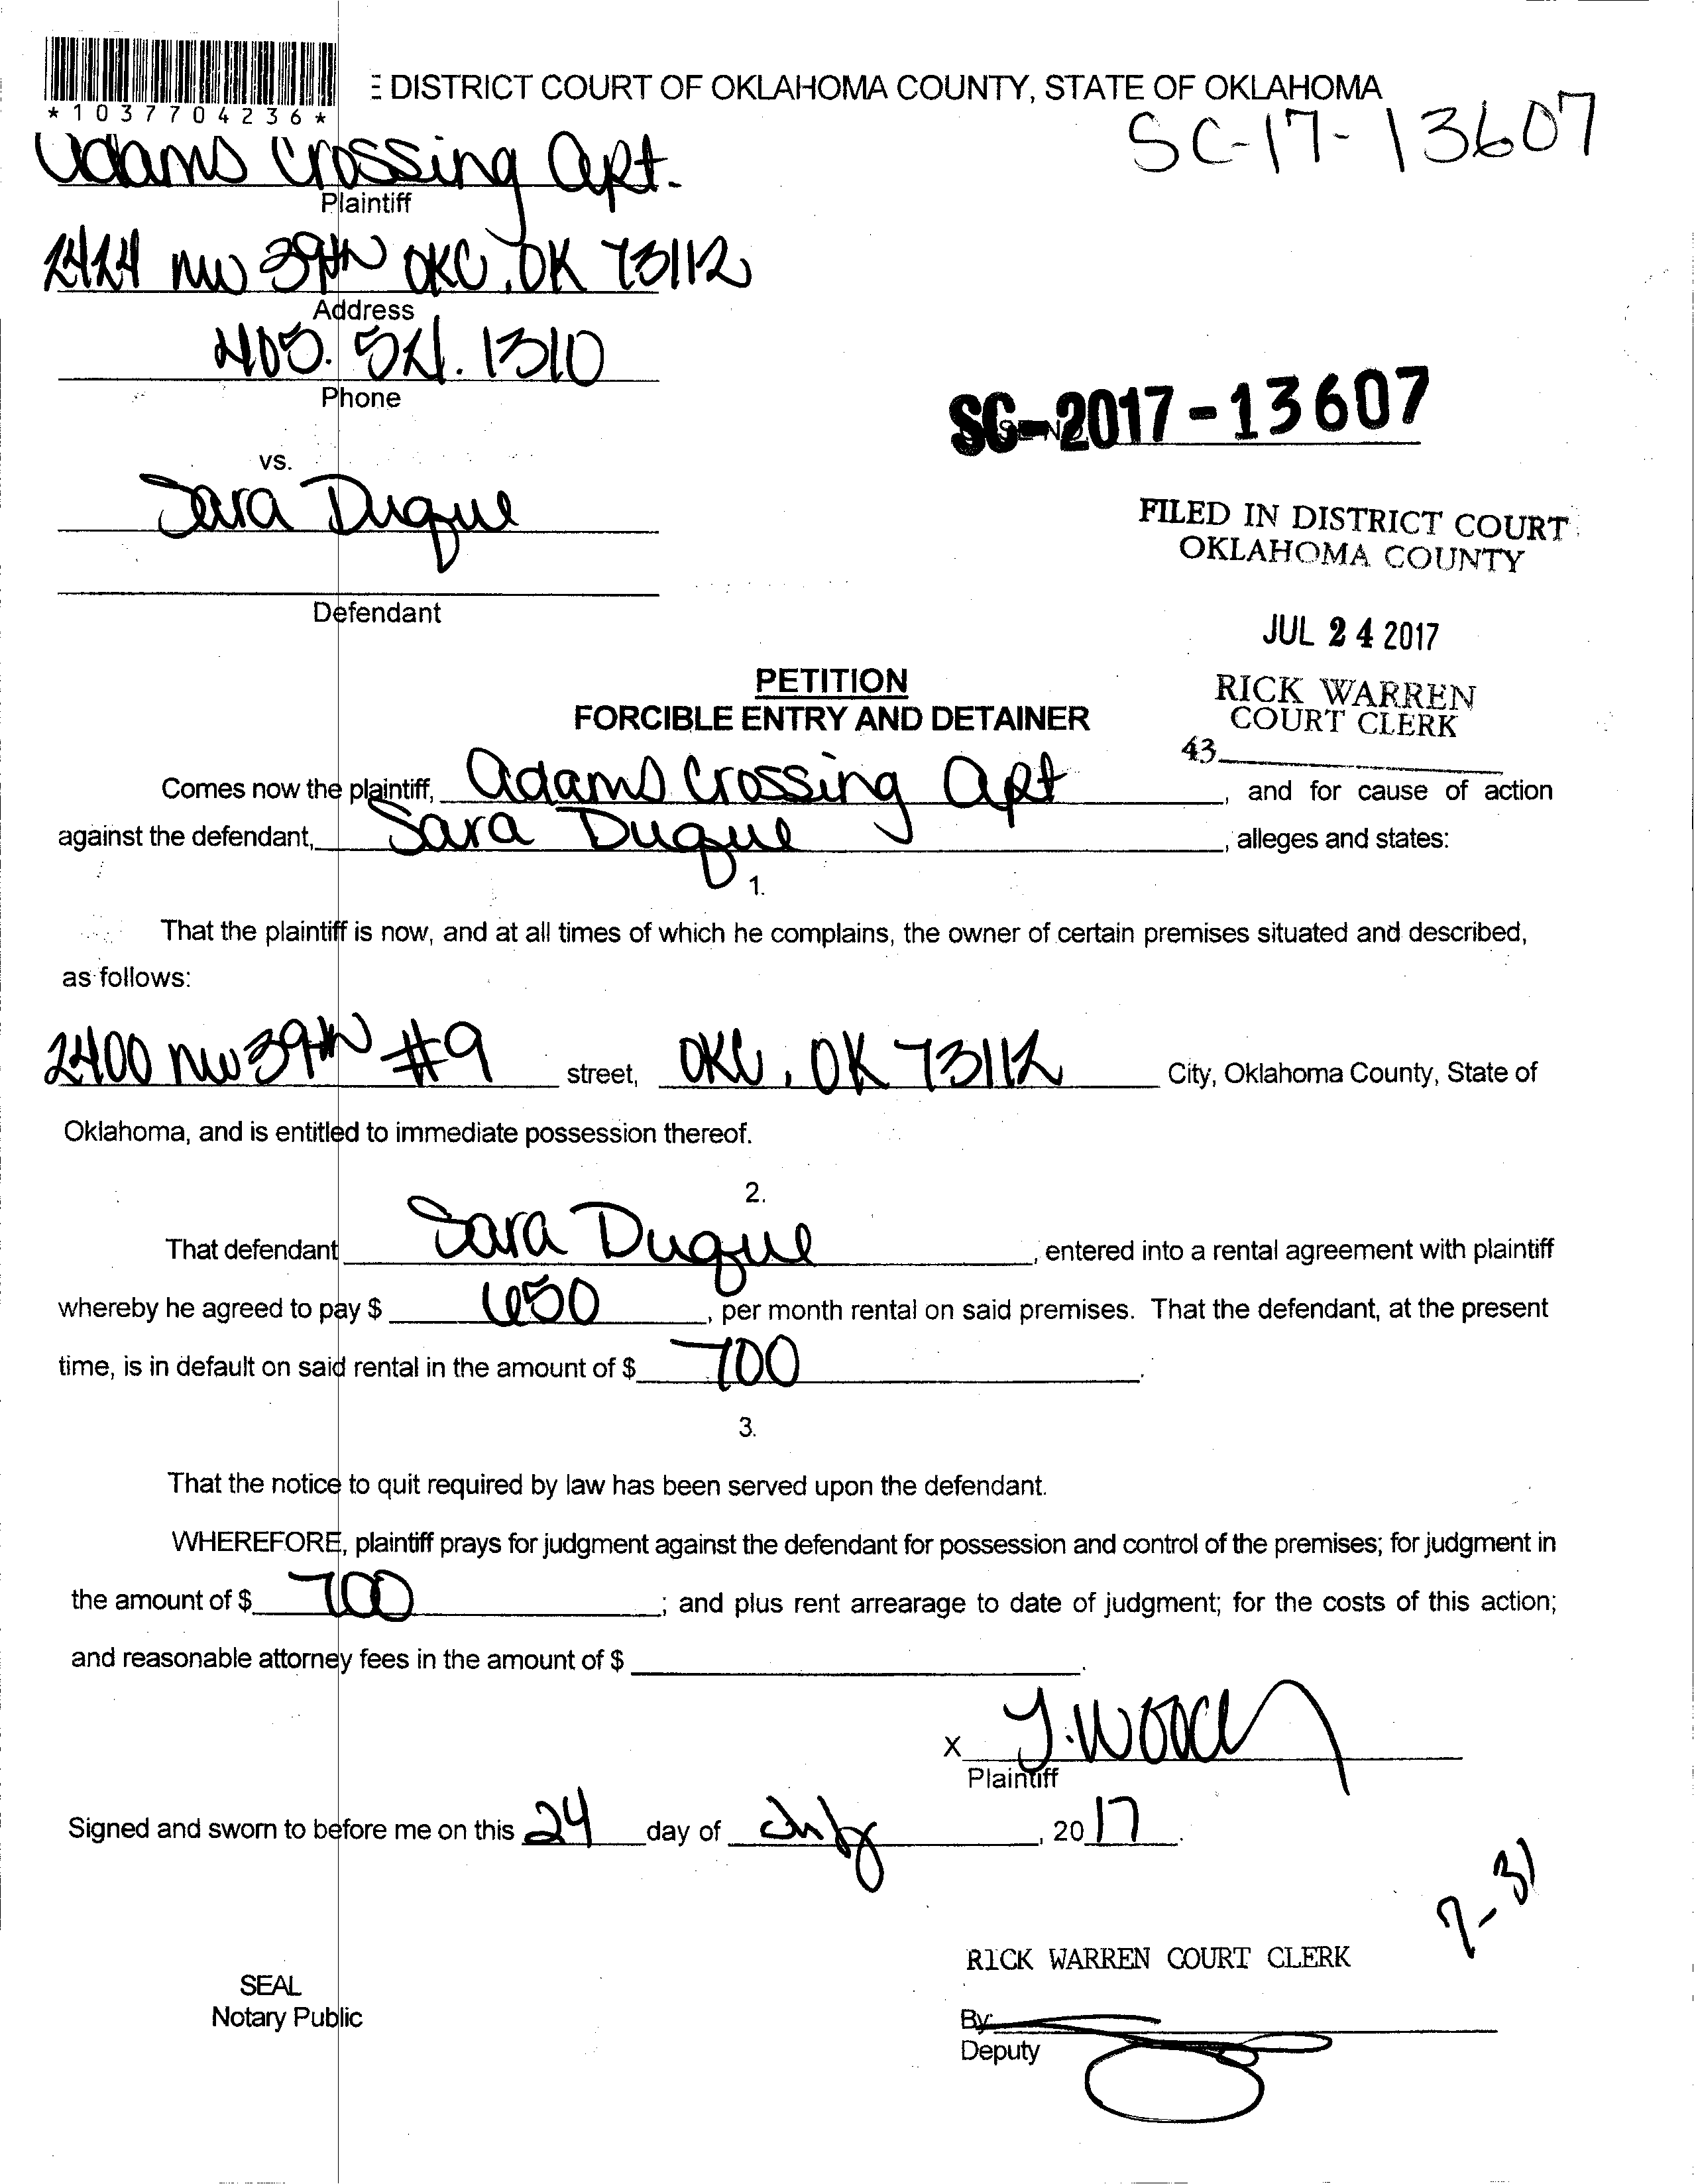 *1037704236*
DISTRICT COURT OF OKLAHOMA COUNTY, STATE OF OKLAHOMA
SC-17-13607
Adams Crossing Apt.
Plaintiff
2424 NW 39th OKC, OK 73112
Address
405.521.1310
Phone
SC-2017-13607
vs.
Sara Duque
FILED IN DISTRICT COURT
OKLAHOMA COUNTY
Defendant
JUL 24 2017
PETITION
FORCIBLE ENTRY AND DETAINER
RICK WARREN
COURT CLERK
43
Comes now the plaintiff, Adams Crossing Apt, and for cause of action
against the defendant, Sara Duque, alleges and states:
1.
That the plaintiff is now, and at all times of which he complains, the owner of certain premises situated and described,
as follows:
2400 NW 39th #9 street, OKC, OK 73112 City, Oklahoma County, State of
Oklahoma, and is entitled to immediate possession thereof.
2.
That defendant Sara Duque, entered into a rental agreement with plaintiff
whereby he agreed to pay $ 650, per month rental on said premises. That the defendant, at the present
time, is in default on said rental in the amount of $ 700.
3.
That the notice to quit required by law has been served upon the defendant.
WHEREFORE, plaintiff prays for judgment against the defendant for possession and control of the premises; for judgment in
the amount of $ 700; and plus rent arrearage to date of judgment; for the costs of this action;
and reasonable attorney fees in the amount of $ .
X
Plaintiff
Signed and sworn to before me on this 24 day of July, 2017.
7-31
RICK WARREN COURT CLERK
SEAL
Notary Public
By:
Deputy